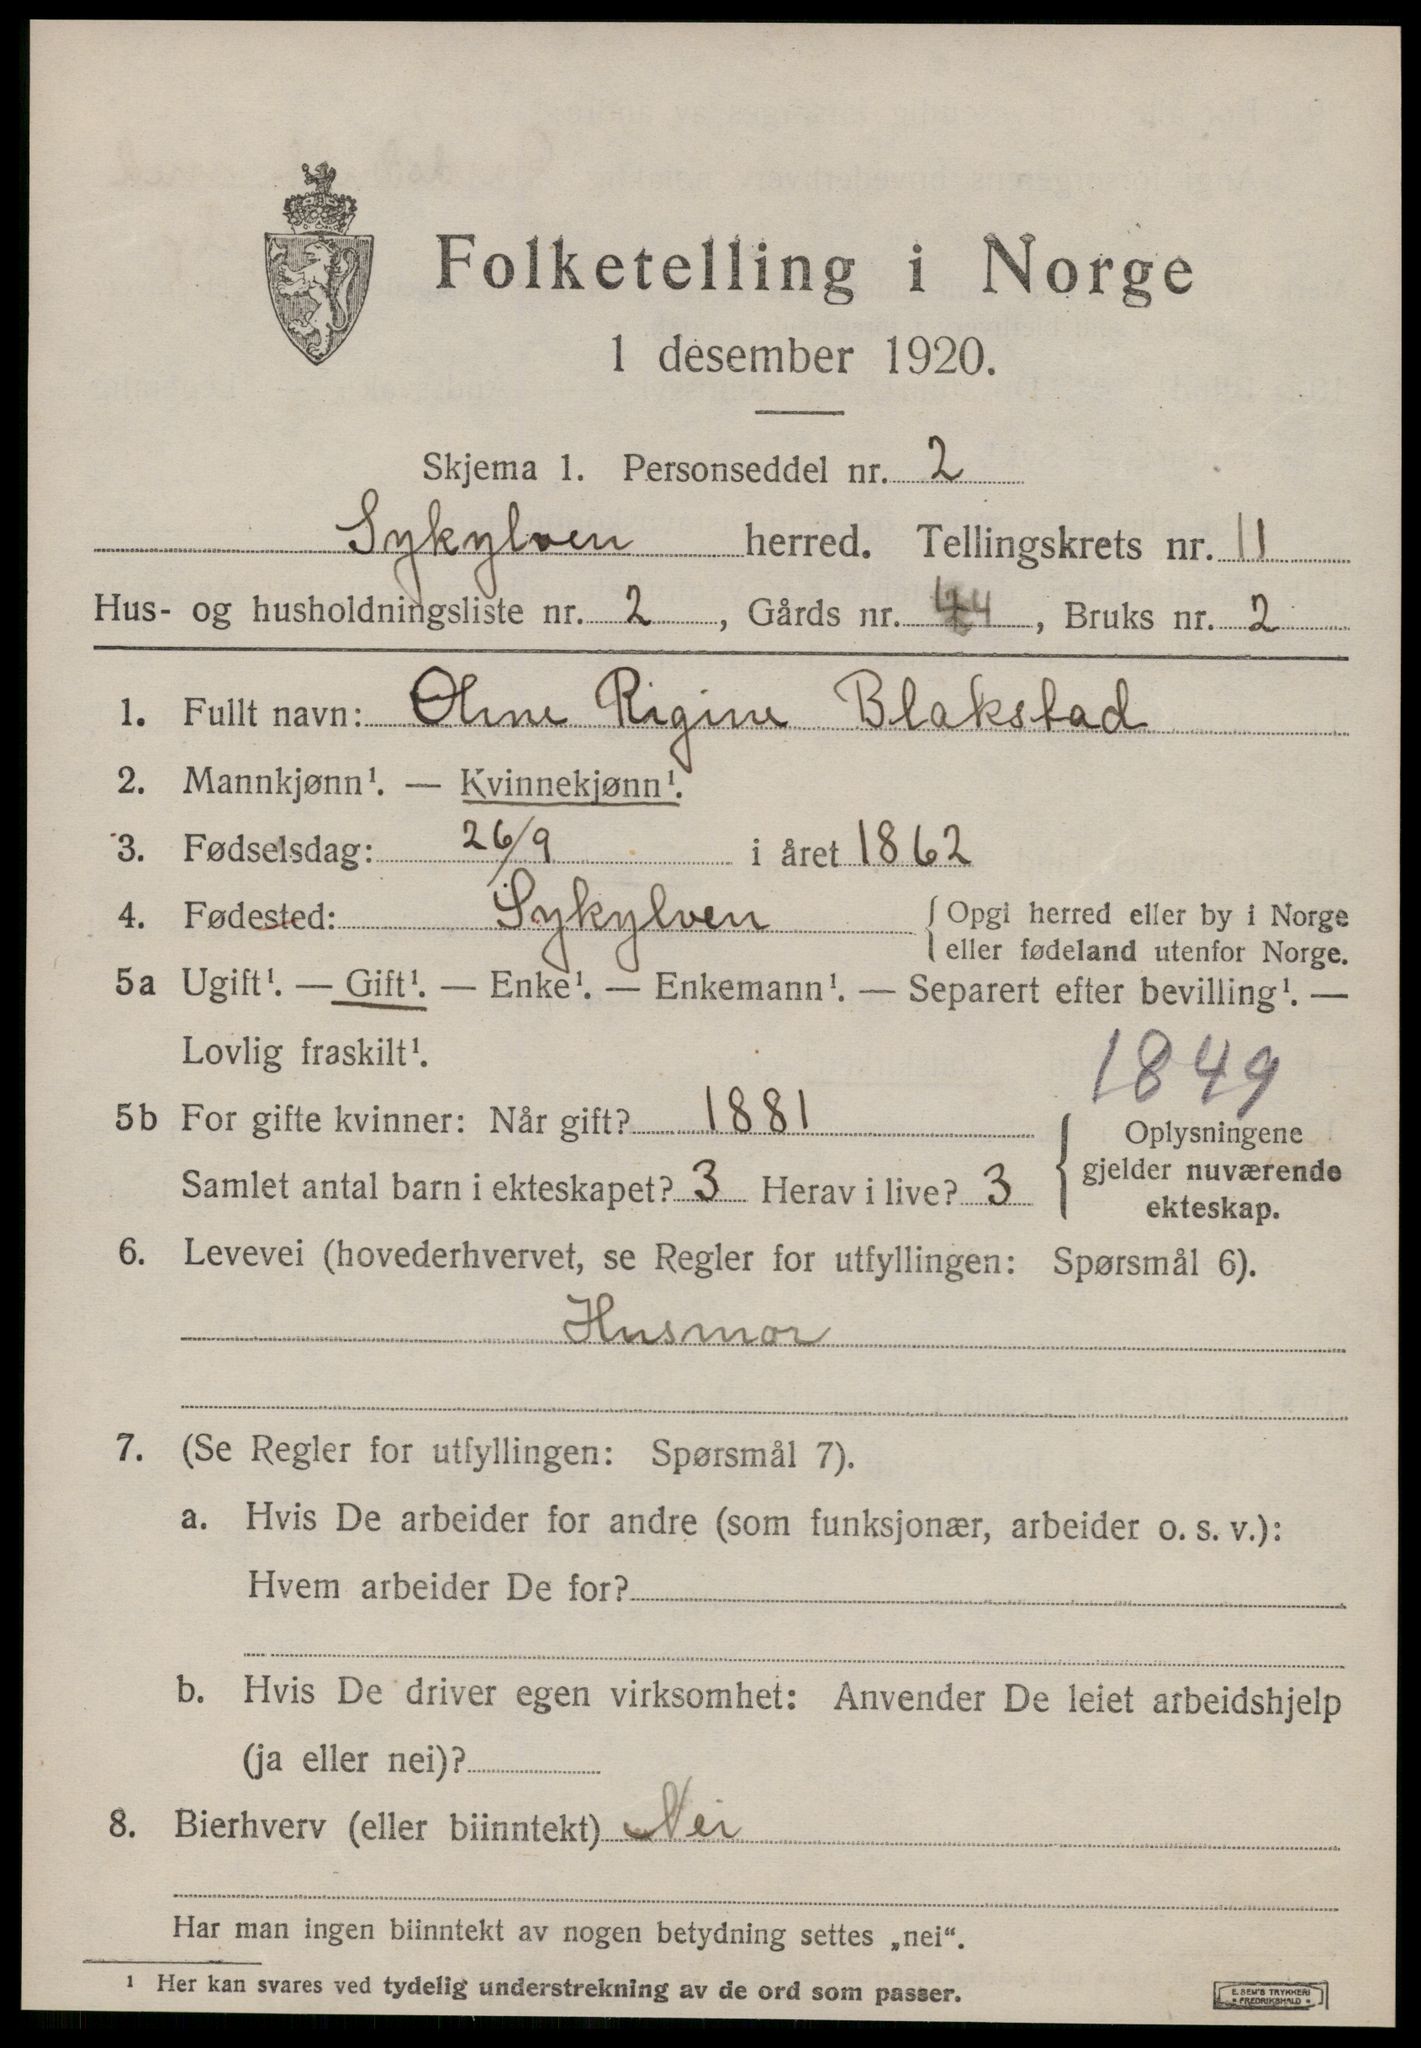 Folketelling i Norge
1 desember 1920.
Skjema 1. Personseddel nr. 2
Sykylven herred. Tellingskrets nr. 11
Hus- og husholdningsliste nr. 2, Gårds nr. 44, Bruks nr. 2
1. Fullt navn: Oline Rigine Blakstad
2. Mannkjønn¹. — Kvinnekjønn¹.
3. Fødselsdag: 26/9 i året 1862
4. Fødested: Sykylven { Opgi herred eller by i Norge
eller fødeland utenfor Norge.
5a Ugift¹. — Gift¹. — Enke¹. — Enkemann¹. — Separert efter bevilling¹. —
Lovlig fraskilt¹.
1849
5b For gifte kvinner: Når gift? 1881
Samlet antal barn i ekteskapet? 3 Herav i live? 3
{ Oplysningene
gjelder nuværende
ekteskap.
6. Levevei (hovederhvervet, se Regler for utfyllingen: Spørsmål 6).
Husmor
7. (Se Regler for utfyllingen: Spørsmål 7).
a. Hvis De arbeider for andre (som funksjonær, arbeider o. s. v.):
Hvem arbeider De for?
b. Hvis De driver egen virksomhet: Anvender De leiet arbeidshjelp
(ja eller nei)?
8. Bierhverv (eller biinntekt) Nei
Har man ingen biinntekt av nogen betydning settes „nei“.
¹ Her kan svares ved tydelig understrekning av de ord som passer.
E. SEM'S TRYKKERI
FREDRIKSHALD